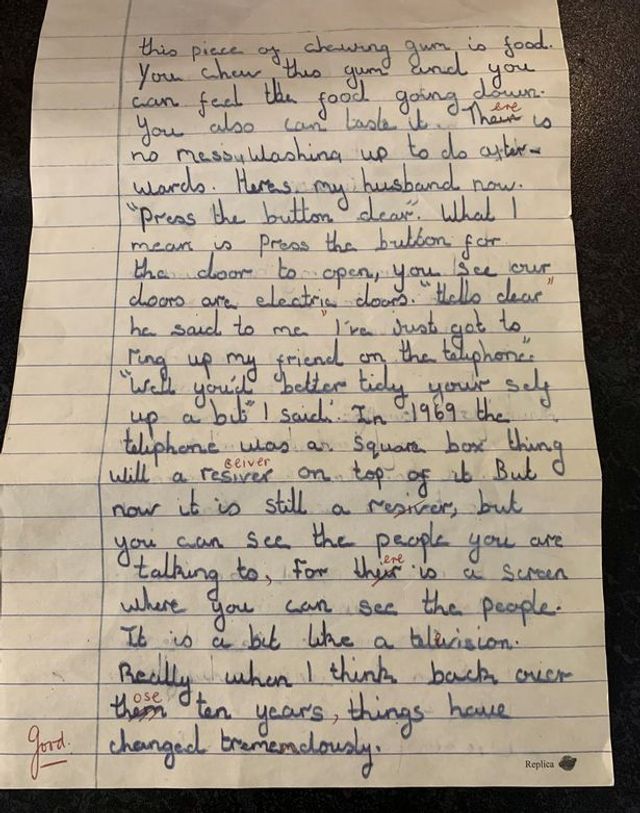 this piece of chewing gum is food.
You chew this gum and you
can feel the food going down.
ere
You also can taste it. Their is
no messy washing up to do after-
wards. Heres my husband now.
"Press the button dear". What I
mean is Press the button for
the door to open, you see our
doors are electric doors. "Hello dear"
he said to me "I've just got to
ring up my friend on the teliphone".
"Well you'd better tidy your self
up a bit" I said. In 1969 the
teliphone was a square box thing
ceiver
will a resiver on top of it But
now it is still a resiver, but
you can see the people you are
ere
talking to, for their is a screen
where you can see the people.
It is a bit like a television.
Really when I think back over
ose
them ten years, things have
good. changed tremendously.
Replica